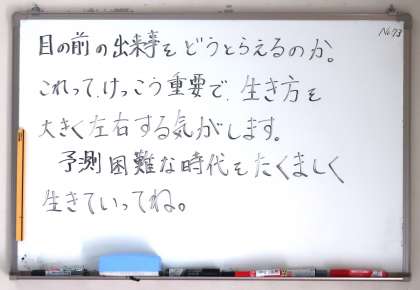 No.73
目の前の出来事をどうとらえるのか。
これって、けっこう重要で、生き方を
大きく左右する気がします。
予測困難な時代をたくましく
生きていってね。